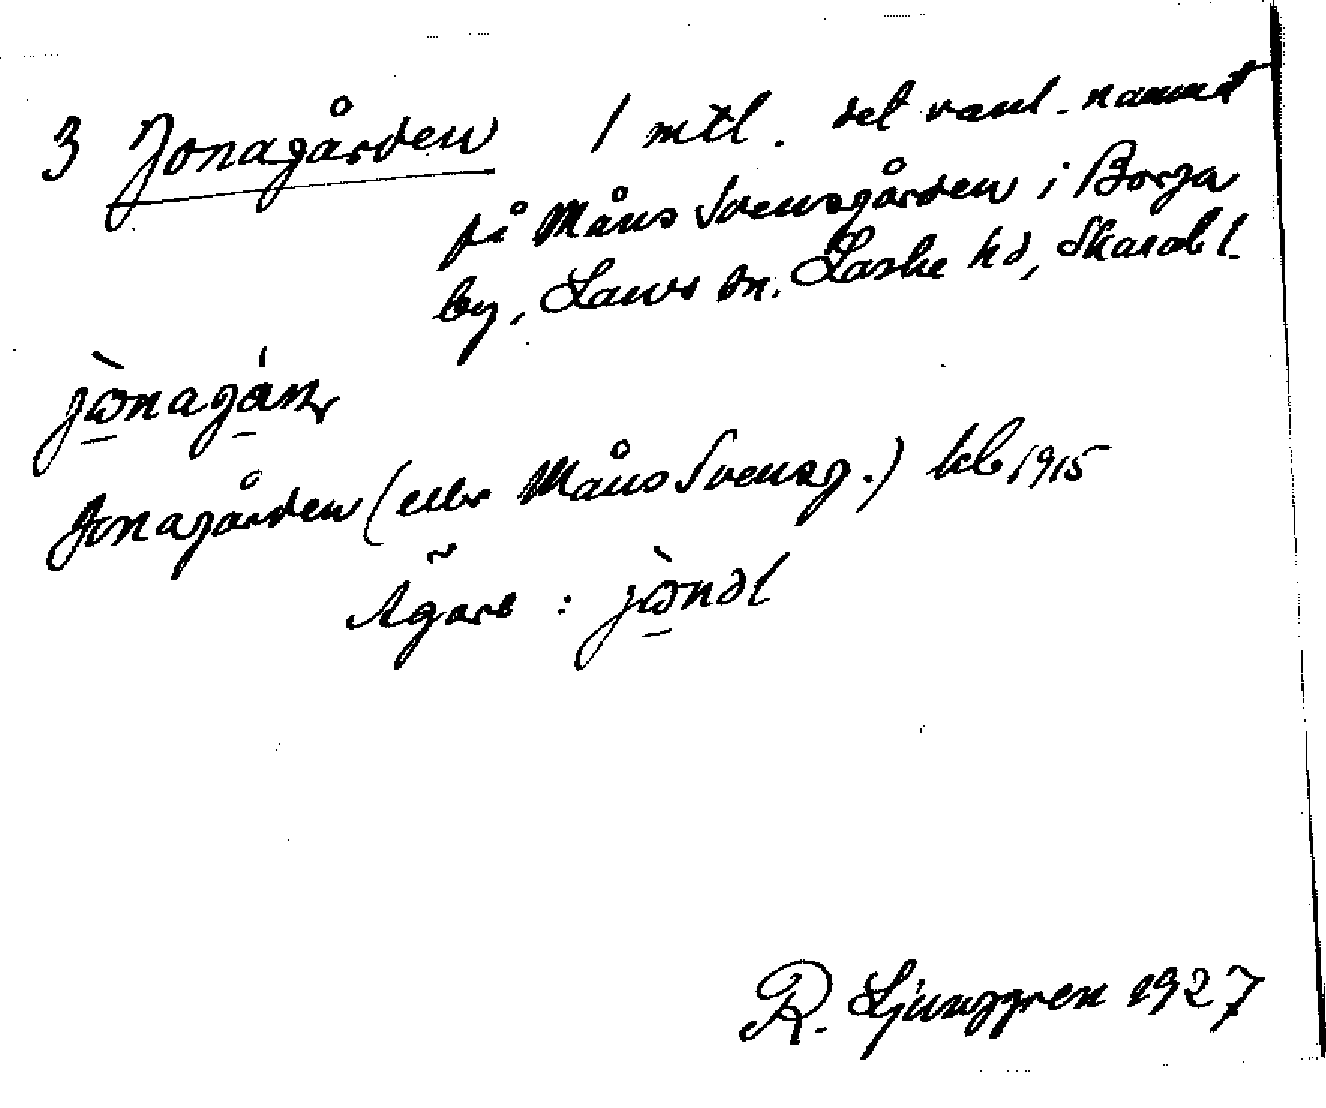 3 Jonagården 1 mtl. det vanl. namnet
på Måns Svensgården i Borga
by, Lavs sn. Laske hd, Skarab l.
jònagán
Jonagården (eller Måns Svensg.) kb 1915
Ägare : jònəl
R. Ljunggren 1927